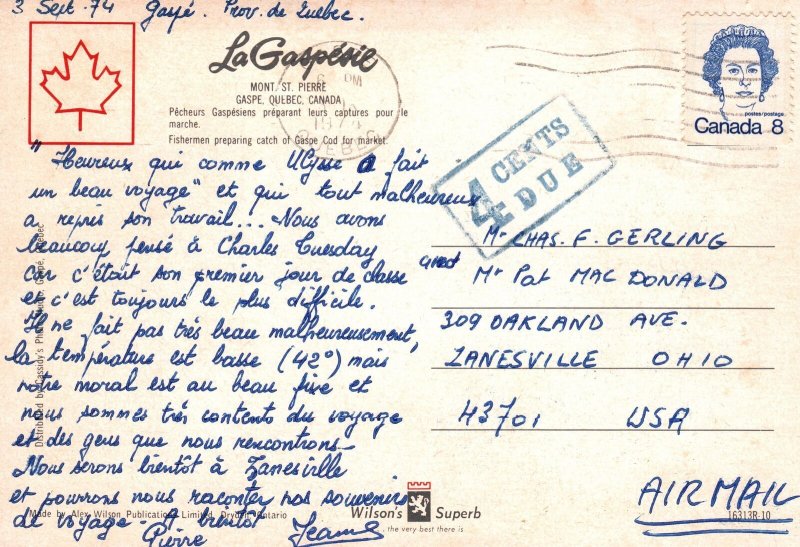 3 Sept. 74 Gaspé. Prov. de Quebec.
La Gaspésie
MONT. ST. PIERRE
GASPE, QUÉBEC, CANADA
Pêcheurs Gaspésiens préparant leurs captures pour le
marche.
Fishermen preparing catch of Gaspe Cod for market.
postes/postage
Canada 8
4 CENTS
DUE
"Heureux qui comme Ulysse a fait
un beau voyage" et qui tout malheureux
a repris son travail... Nous avons
beaucoup pensé à Charles Tuesday
car c'était son premier jour de classe
et c'est toujours le plus difficile.
Il ne fait pas très beau malheureusement,
la température est basse (42°) mais
notre moral est au beau fixe et
nous sommes très contents du voyage
et des gens que nous rencontrons-
Nous serons bientôt à Zanesville
et pourrons nous raconter nos souvenirs
de voyage - A bientôt
Pierre Jeanne
Mr CHAS. F. GERLING
and
Mr Pat MAC DONALD
309 OAKLAND AVE.
ZANESVILLE OHIO
43701 USA
AIR MAIL
Distributed by Cassidy's Gaspé, Quebec.
Made by Alex Wilson Publications Limited, Dryden, Ontario
Wilson's Superb
. . . the very best there is
16313R-10